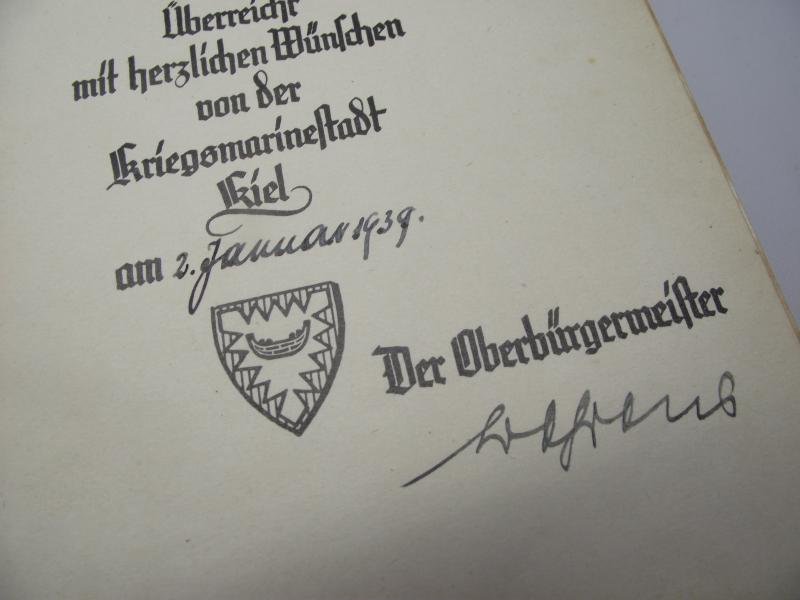 Überreicht
mit herzlichen Wünschen
von der
Kriegsmarinestadt
Kiel
am 2. Januar 1939.
Der Oberbürgermeister
Behrens